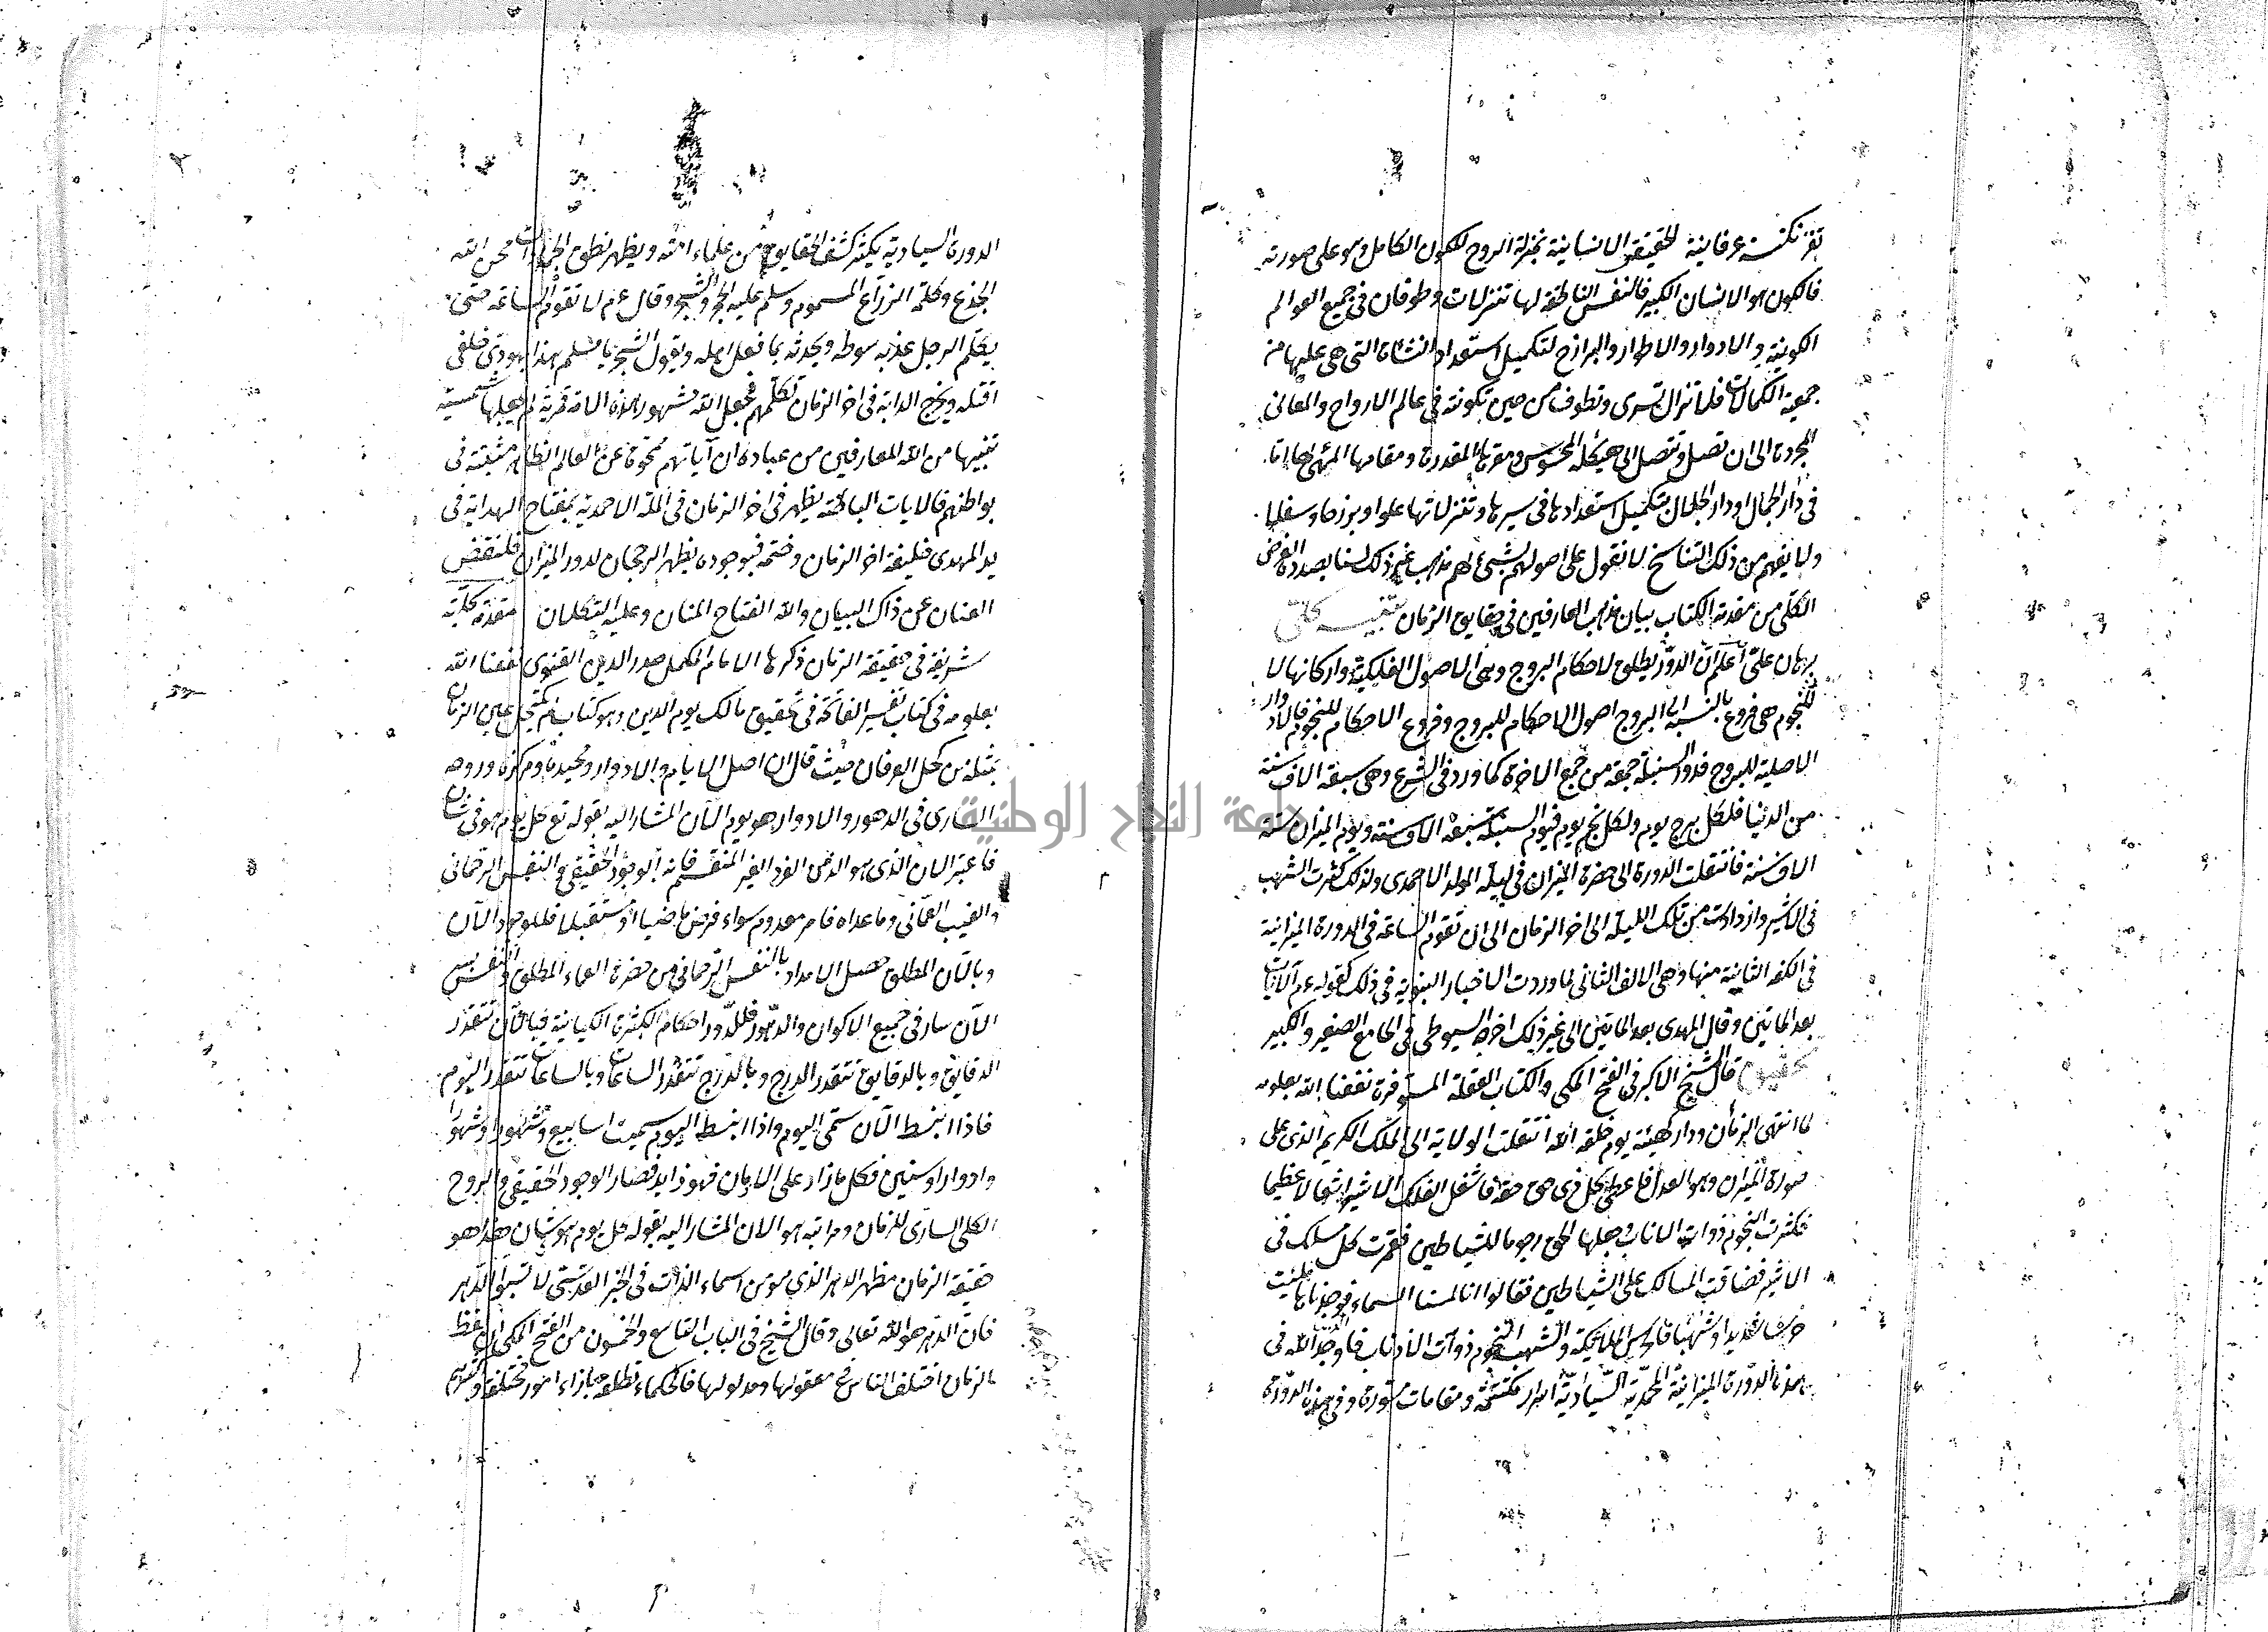 نكتة عرفانية الحقيقة الانسانية بمنزلة الروح للكون الكامل وهو على صورته
فالكون هو الانسان الكبير فالنفس الناطقة لها تنزلات وطوفان في جميع العوالم
الكونية والادوار والاطوار والبرازخ لتكميل استعداد النشاة التي هي عليها من
جمعية الكمالات فلا تزال تسرى وتطوف من حين تكونه في عالم الارواح والمعاني
المجردة الى ان تصل وتتصل الى هيكله المحسوس ومقرها المقدرة ومقامها المنتهى اما
في دار الجمال او دار الجلال بتكميل استعدادها في سيرها وتنزلاتها علوا وبرزخا وسفليا
ولا يفهم من ذلك التناسخ لا نقول على اصولهم لشئ لهم مذهب غير ذلك لسنا بصدده الغرض
الكلي من مقدمة الكتاب بيان مذهب العارفين في حقايق الزمان تنبيه كلي
برهان علمي اعلم ان الدور يطلق لاحكام البروج وهي الاصول الفلكية واركانها لا
للنجوم هي فروع بالنسبة الى البروج اصول الاحكام للبروج وفروع الاحكام للنجوم فالادوار
الاصلية للبروج فدور السنبلة جمعة من جمع الاخرة كما ورد في الشرع وهي سبعة الاف سنة
من الدنيا فلكل برج يوم ولكل نجم يوم فيوم السنبلة سبعة الاف سنة ويوم الميزان ستة
الاف سنة فانتقلت الدورة الى حضرة الميزان في ليلة المولد الاحمدي ولذلك كثرت الشهب
في الاثير وازدادت من تلك الليلة الى اخر الزمان الى ان تقوم الساعة في الدورة الميزانية
في الكفه الثانية منها وهي الالف الثاني لما وردت الاخبار النبوية في ذلك كقوله عم الايات
بعد المأتين وقال المهدي بعد المأتين الى غير ذلك اخرجه السيوطي في الجامع الصغير والكبير
تحقيق قال الشيخ الاكبر في الفتح المكي والكتاب العقلة المستوفزة نفعنا الله بعلومه
لما انتهى الزمان ودار كهيئة يوم خلقه الله انتقلت الولاية الى الملك الكريم الذي على
صورة الميزان وهو العدل فاعطى كل ذي حق حقه فاشتعل الفلك الاثير اشتعالا عظيما
فكثرت النجوم ذوات الاذناب وجعلها الحق رجوما للشياطين فعمرت كل مسلك في
الاثير فضاقت المسالك على الشياطين فقالوا انا لمسنا السماء فوجدناها ملئت
حرسا شديدا وشهبا فالحرس الملائكة والشهب النجوم ذوات الاذناب فاوجد الله في
هذه الدورة الميزانية المحمدية السيادية اسرار مكتتمة ومقامات مستورة وفي هذه الدورة
الدورة السيادية يكثر كشف الحقايق من علماء امته ويظهر نطق الجمادات نحن الله
الجذع وكلمه الزراع المسموم وسلم عليه الحجر والشجر وقال عم لا تقوم الساعة حتى
يكلم الرجل عذبه سوطه ويحدثه بما فعل اهله ويقول الشجر يا مسلم هذا يهودي خلفي
اقتله ويخرج الدابة في اخر الزمان تكلمهم فجعل الله شهور هذه الامة قمرية لم يجعلها شمسية
تنبيها من الله للعارفين من عباده ان آياتهم ممحوة عن العالم الظاهر مثبتة في
بواطنهم فالايات الباطنة يظهر في اخر الزمان في الملة الاحمدية بمفتاح الهداية في
يد المهدي خليفة اخر الزمان وختمه فبوجوده يظهر الرجحان لدور الميزان فلنقبض
العنان عن ذاك البيان والله الفتاح المنان وعليه التكلان مقدمة كلية
شريفة في حقيقة الزمان ذكرها الامام المكمل صدر الدين القنوي نفعنا الله
بعلومه في كتاب تفسير الفاتحة في تحقيق مالك يوم الدين وهو كتاب لم يكتحل عين الزمان
بمثله من كحل العرفان حيث قال ان اصل الايام والادوار ومحيدها ومركزه وروحه
الساري في الدهور والادوار هو يوم الآن المشار اليه بقوله تع كل يوم هو في شان
فاعتبر الان الذي هو الزمن الفرد الغير المنقسم فانه الوجود الحقيقي والنفس الرحماني
والغيب العمائي وما عداه فامر معدوم سواء فرض ماضيا او مستقبلا فللوجود الآن
وبالآن المطلق حصل الامداد بالنفس الرحماني من حضرة العماء المطلق والنفس
الآن سار في جميع الاكوان والدهور فللدور احكام الكثرة الكيانية فبالآن تتقدر
الدقايق وبالدقايق تتقدر الدرج وبالدرج تتقدر الساعات وبالساعات تتقدر اليوم
فاذا انبسط الآن سمى اليوم واذا انبسط اليوم سميت اسابيع وشهورا وشهورا
وادوارا وسنين فكل ما زاد على الان فهو زايد فصار الوجود الحقيقي والروح
الكلي الساري للزمان ومراتبه هو الان المشار اليه بقوله كل يوم هو في شان هذا هو
حقيقة الزمان مظهر الدهر الذي هو من اسماء الذات في الخبر القدسي لا تسبوا الدهر
فان الدهر هو الله تعالى وقال الشيخ في الباب التاسع والخمسون من الفتح المكي ان لفظ
الزمان اختلف الناس في معقولها ومدلولها فالحكماء تطلقه بازاء امور مختلفة واكثرهم
جامعة النجاح الوطنية